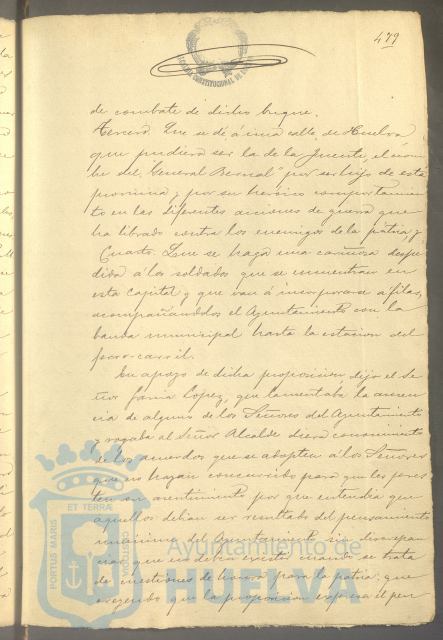 479
ALCALDIA CONSTITUCIONAL DE
de combate de dicho buque.
Tercero. Que se dé á una calle de Huelva
que pudiera ser la de la Fuente, el nom-
bre del "General Bernal" por ser hijo de esta
provincia y por su heróico comportamien
to en las diferentes acciones de guerra que
ha librado contra los enemigos de la patria, y
Cuarto. Que se haga una cariñosa despe
dida á los soldados que se encuentran en
esta Capital y que van á incorporarse á filas,
acompañándolos el Ayuntamiento con la
banda municipal hasta la estacion del
ferro-carril.
En apoyo de dicha proposicion, dijo el Se
ñor Garcia Lopez, que lamentaba la ausen
cia de alguno de los Señores del Ayuntamiento
y rogaba al Señor Alcalde diera conocimiento
de los acuerdos que se adopten á los Señores
que no hayan concurrido para que les pres
ten su asentimiento por que entendia que
aquellos debian ser resultado del pensamiento
unánime del Ayuntamiento sin discrepan
cias, que no deben existir cuando se trata
de cuestiones de honra para la patria; que
creyendo que la proposicion expresa el pen
PORTUS MARIS ET TERRÆ CUSTODIA
Ayuntamiento de
HUELVA